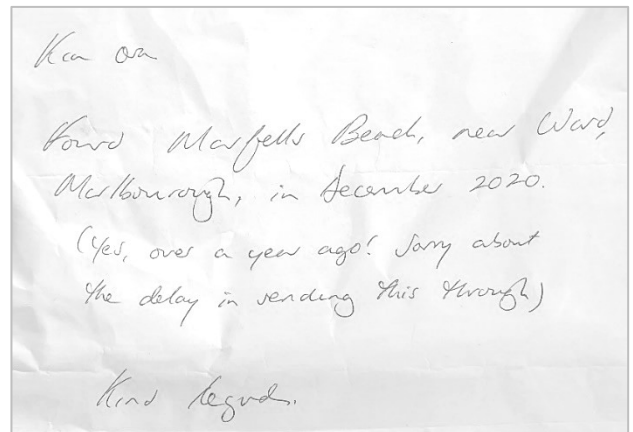 Kia ora
Found Marfells Beach, near Ward,
Marlbourough, in December 2020.
(Yes, over a year ago! Sorry about
the delay in sending this through)
Kind Regards.